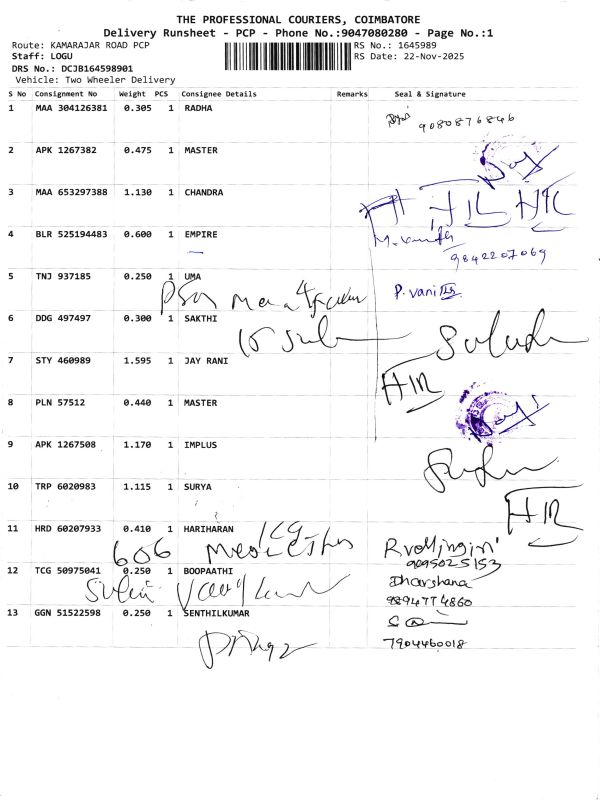 THE PROFESSIONAL COURIERS, COIMBATORE
Delivery Runsheet - PCP - Phone No.:9047080280 - Page No.:1
Route: KAMARAJAR ROAD PCP RS No.: 1645989
Staff: LOGU RS Date: 22-Nov-2025
DRS No.: DCJB164598901
Vehicle: Two Wheeler Delivery
S No Consignment No Weight PCS Consignee Details Remarks Seal & Signature
1 MAA 304126381 0.305 1 RADHA
9080876846
2 APK 1267382 0.475 1 MASTER
3 MAA 653297388 1.130 1 CHANDRA
4 BLR 525194483 0.600 1 EMPIRE
9842207069
5 TNJ 937185 0.250 1 UMA
P. vani
6 DDG 497497 0.300 1 SAKTHI
7 STY 460989 1.595 1 JAY RANI
8 PLN 57512 0.440 1 MASTER
9 APK 1267508 1.170 1 IMPLUS
10 TRP 6020983 1.115 1 SURYA
11 HRD 60207933 0.410 1 HARIHARAN
606
9095025153
12 TCG 50975041 0.250 1 BOOPAATHI
Dharshana
9894774860
13 GGN 51522598 0.250 1 SENTHILKUMAR
7904460018